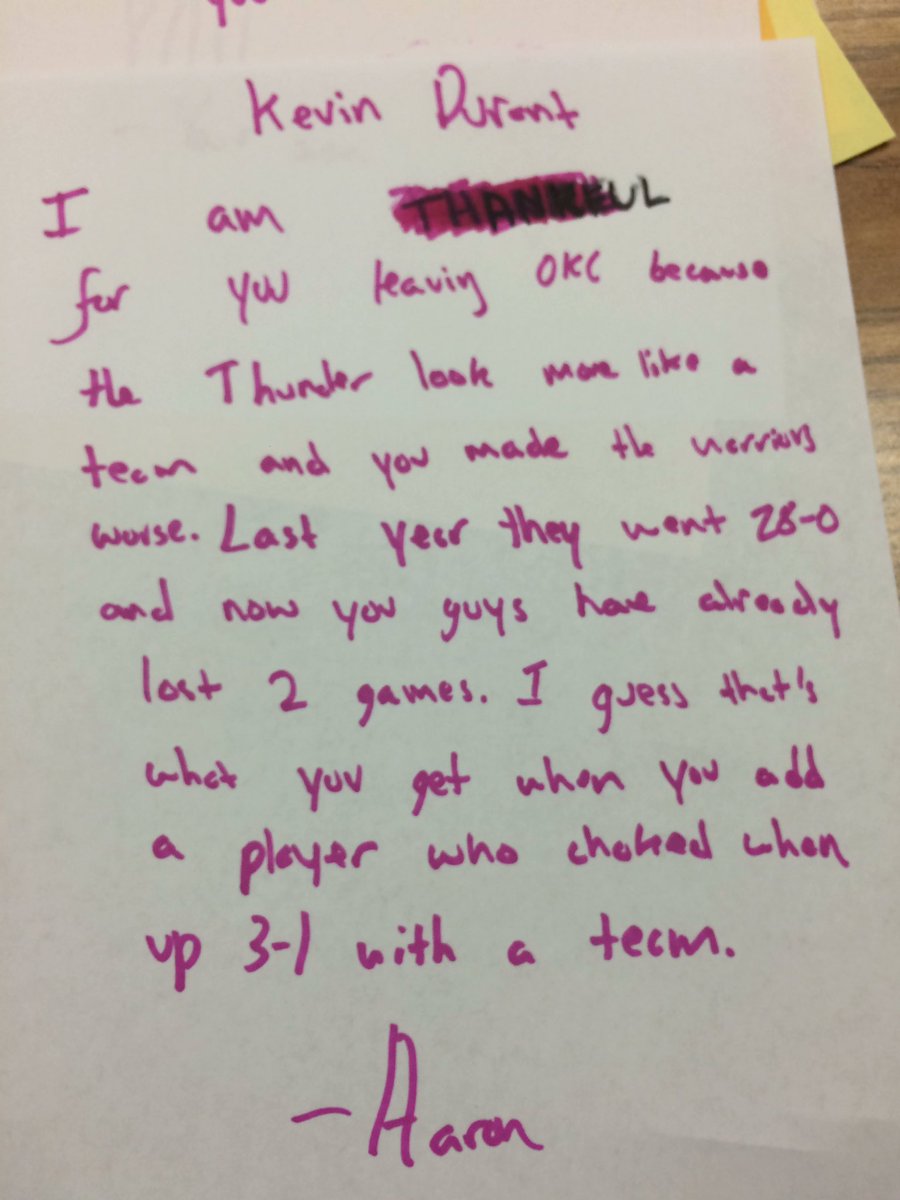 you
Kevin Durant
I am THANKFUL
for you leaving OKC because
the Thunder look more like a
team and you made the warriors
worse. Last year they went 28-0
and now you guys have already
lost 2 games. I guess that's
what you get when you add
a player who choked when
up 3-1 with a team.
-Aaron